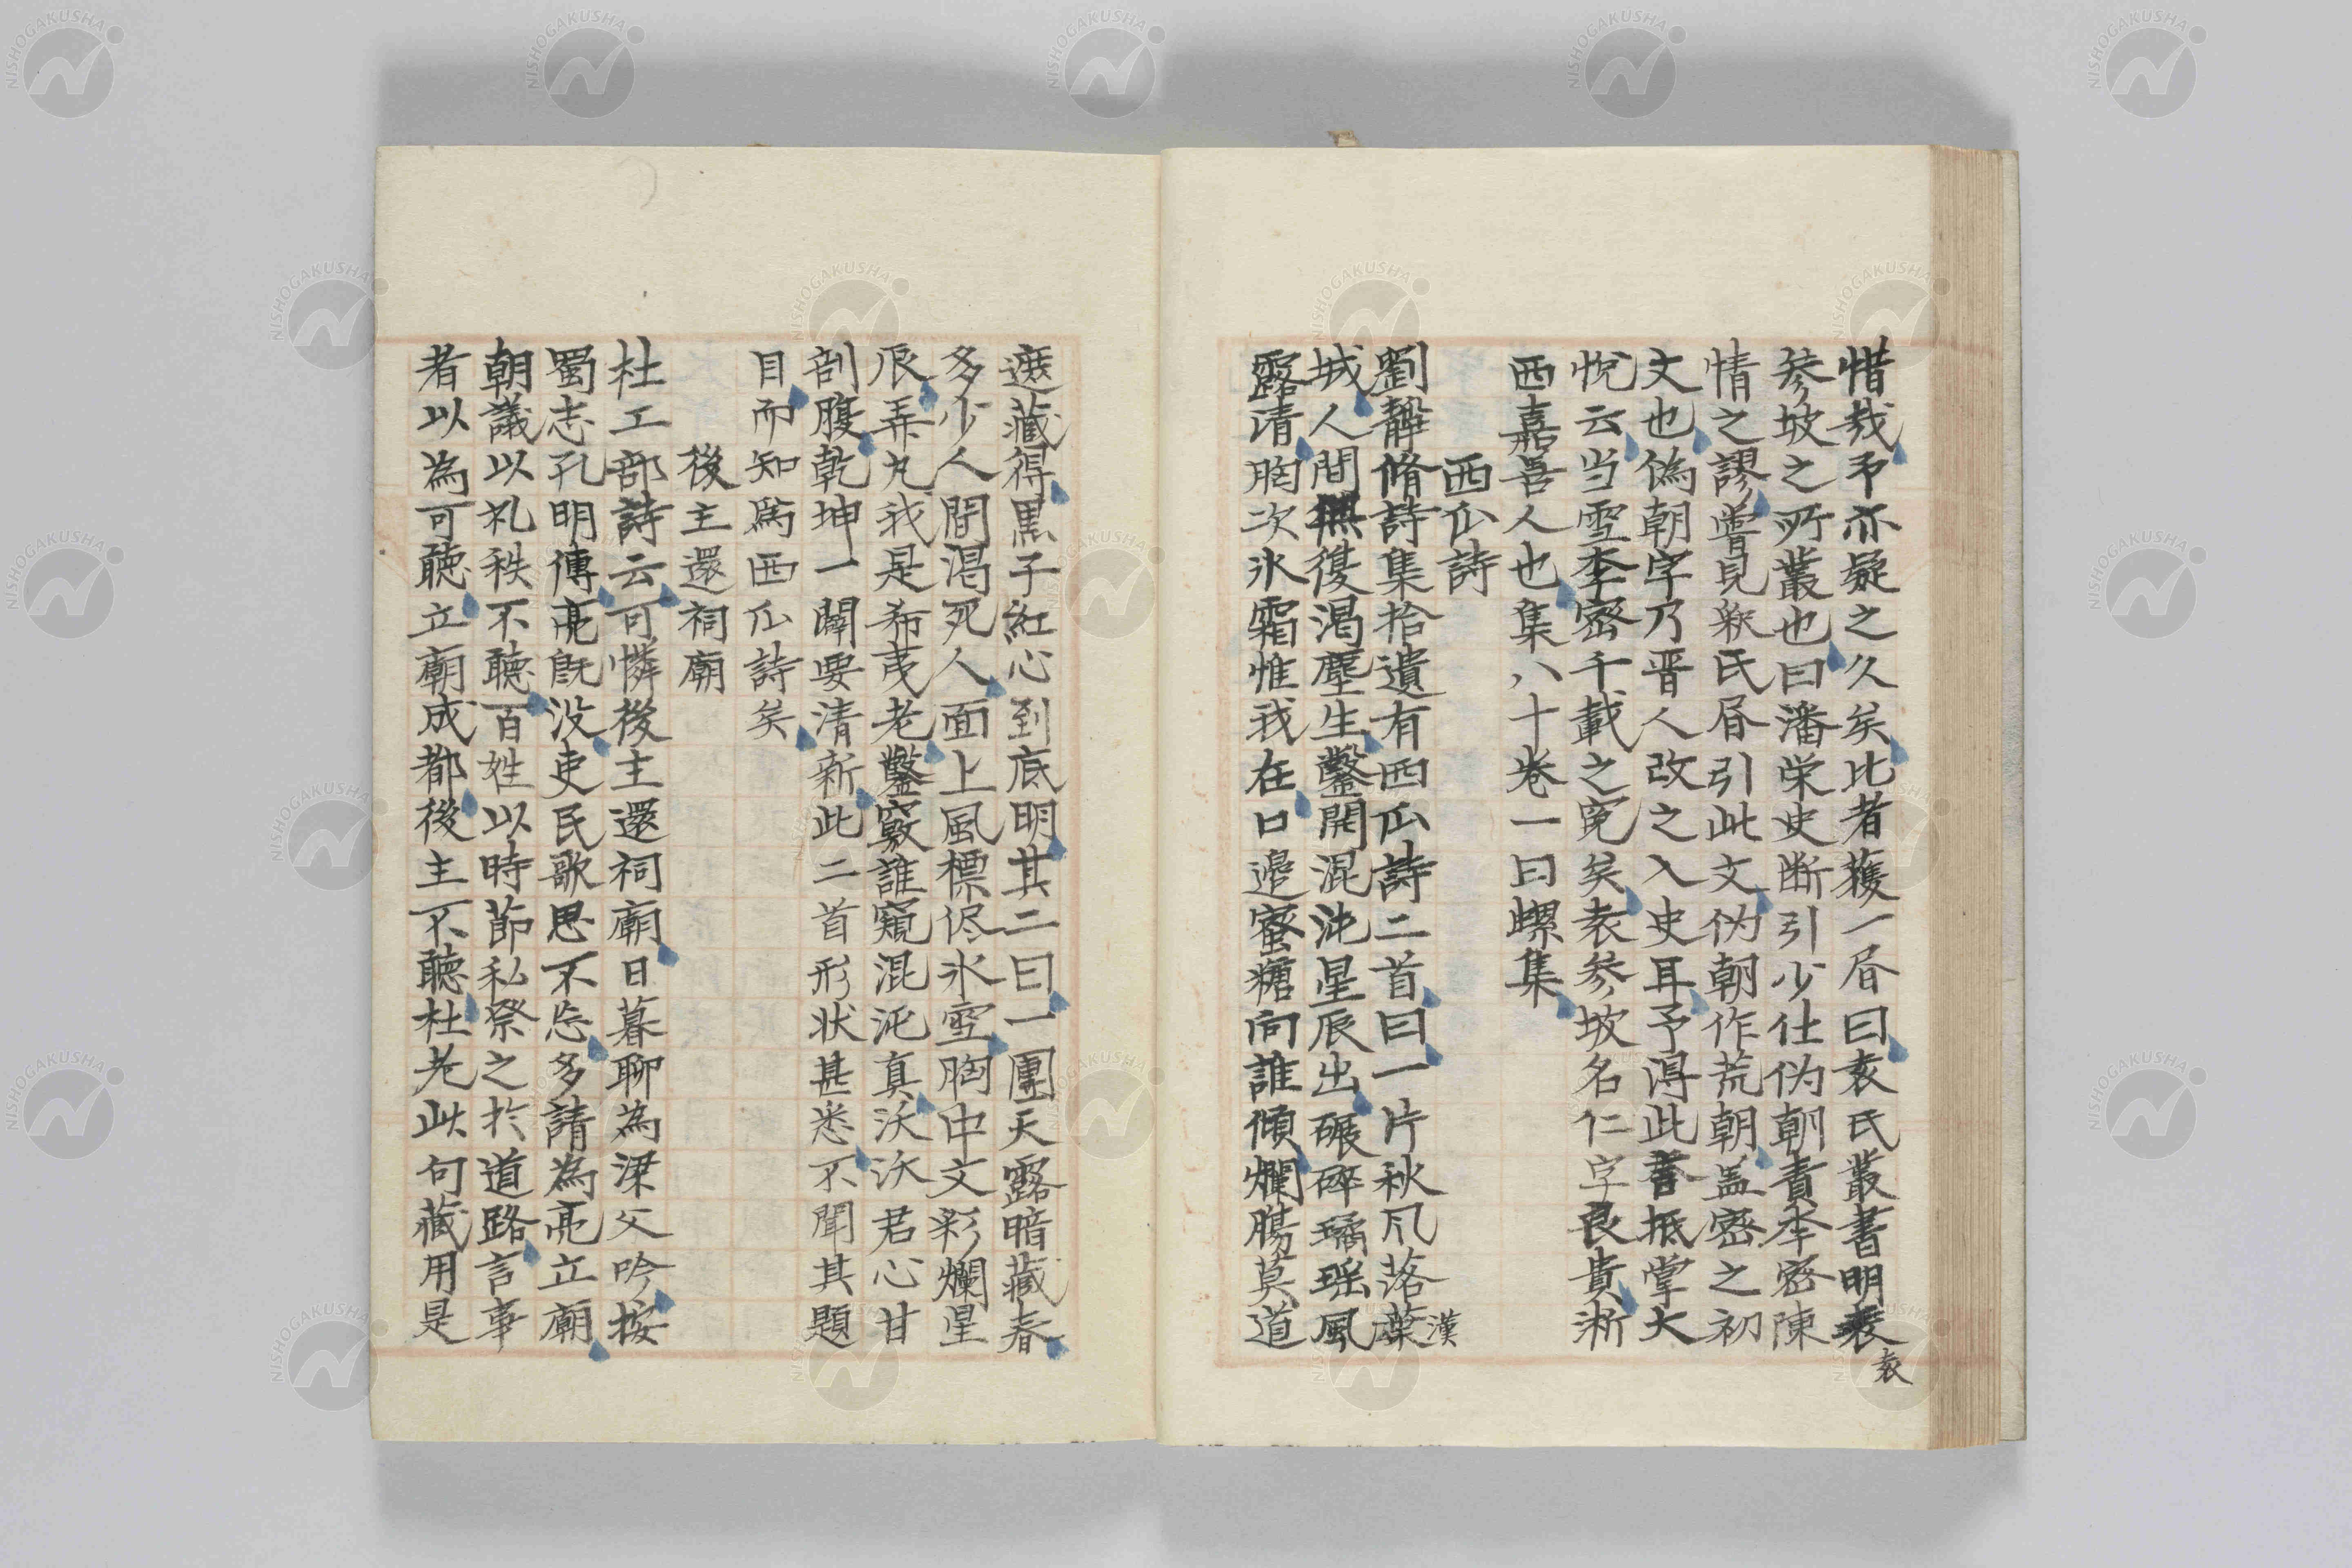 惜哉予亦疑之久矣比者獲一眉曰袁氏叢書明袁
袁
参坡之所叢也曰潘栄史断引少仕伪朝責李密陳
情之謬嘗見釈氏眉引此文伪朝作荒朝盖密之初
文也偽朝字乃晋人改之入史耳予淂此書抵掌大
悦云当雪李密千載之寃矣袁参坡名仁字良貴淅
西嘉善人也集八十卷一曰螺集
西瓜詩
劉静脩詩集拾遺有西瓜詩二首曰一片秋凡落葉
漢
城人間無復渇塵生鑿開混沌星辰出碾碎璚瑶風
露清胸次氷霜惟我在口邉蜜糖向誰傾爛腸莫道
遮藏得黒子紅心到底明其二曰一團天露暗藏春
多少人間渇死人面上風標侭氷空胸中文彩爛星
辰弄丸我是希夷老鑿竅誰窺混沌真沃沃君心甘
剖腹乾坤一闢要清新此二首形状甚悉不聞其題
目而知爲西瓜詩矣
後主還祠廟
杜工部詩云可憐後主還祠廟日暮聊為梁父吟按
蜀志孔明傳亮既没吏民歌思不忘多請為亮立廟
朝議以礼秩不聴百姓以時節私祭之於道路言事
者以為可聴立廟成都後主不聴杜老此句藏用是
NISHOGAKUSHA